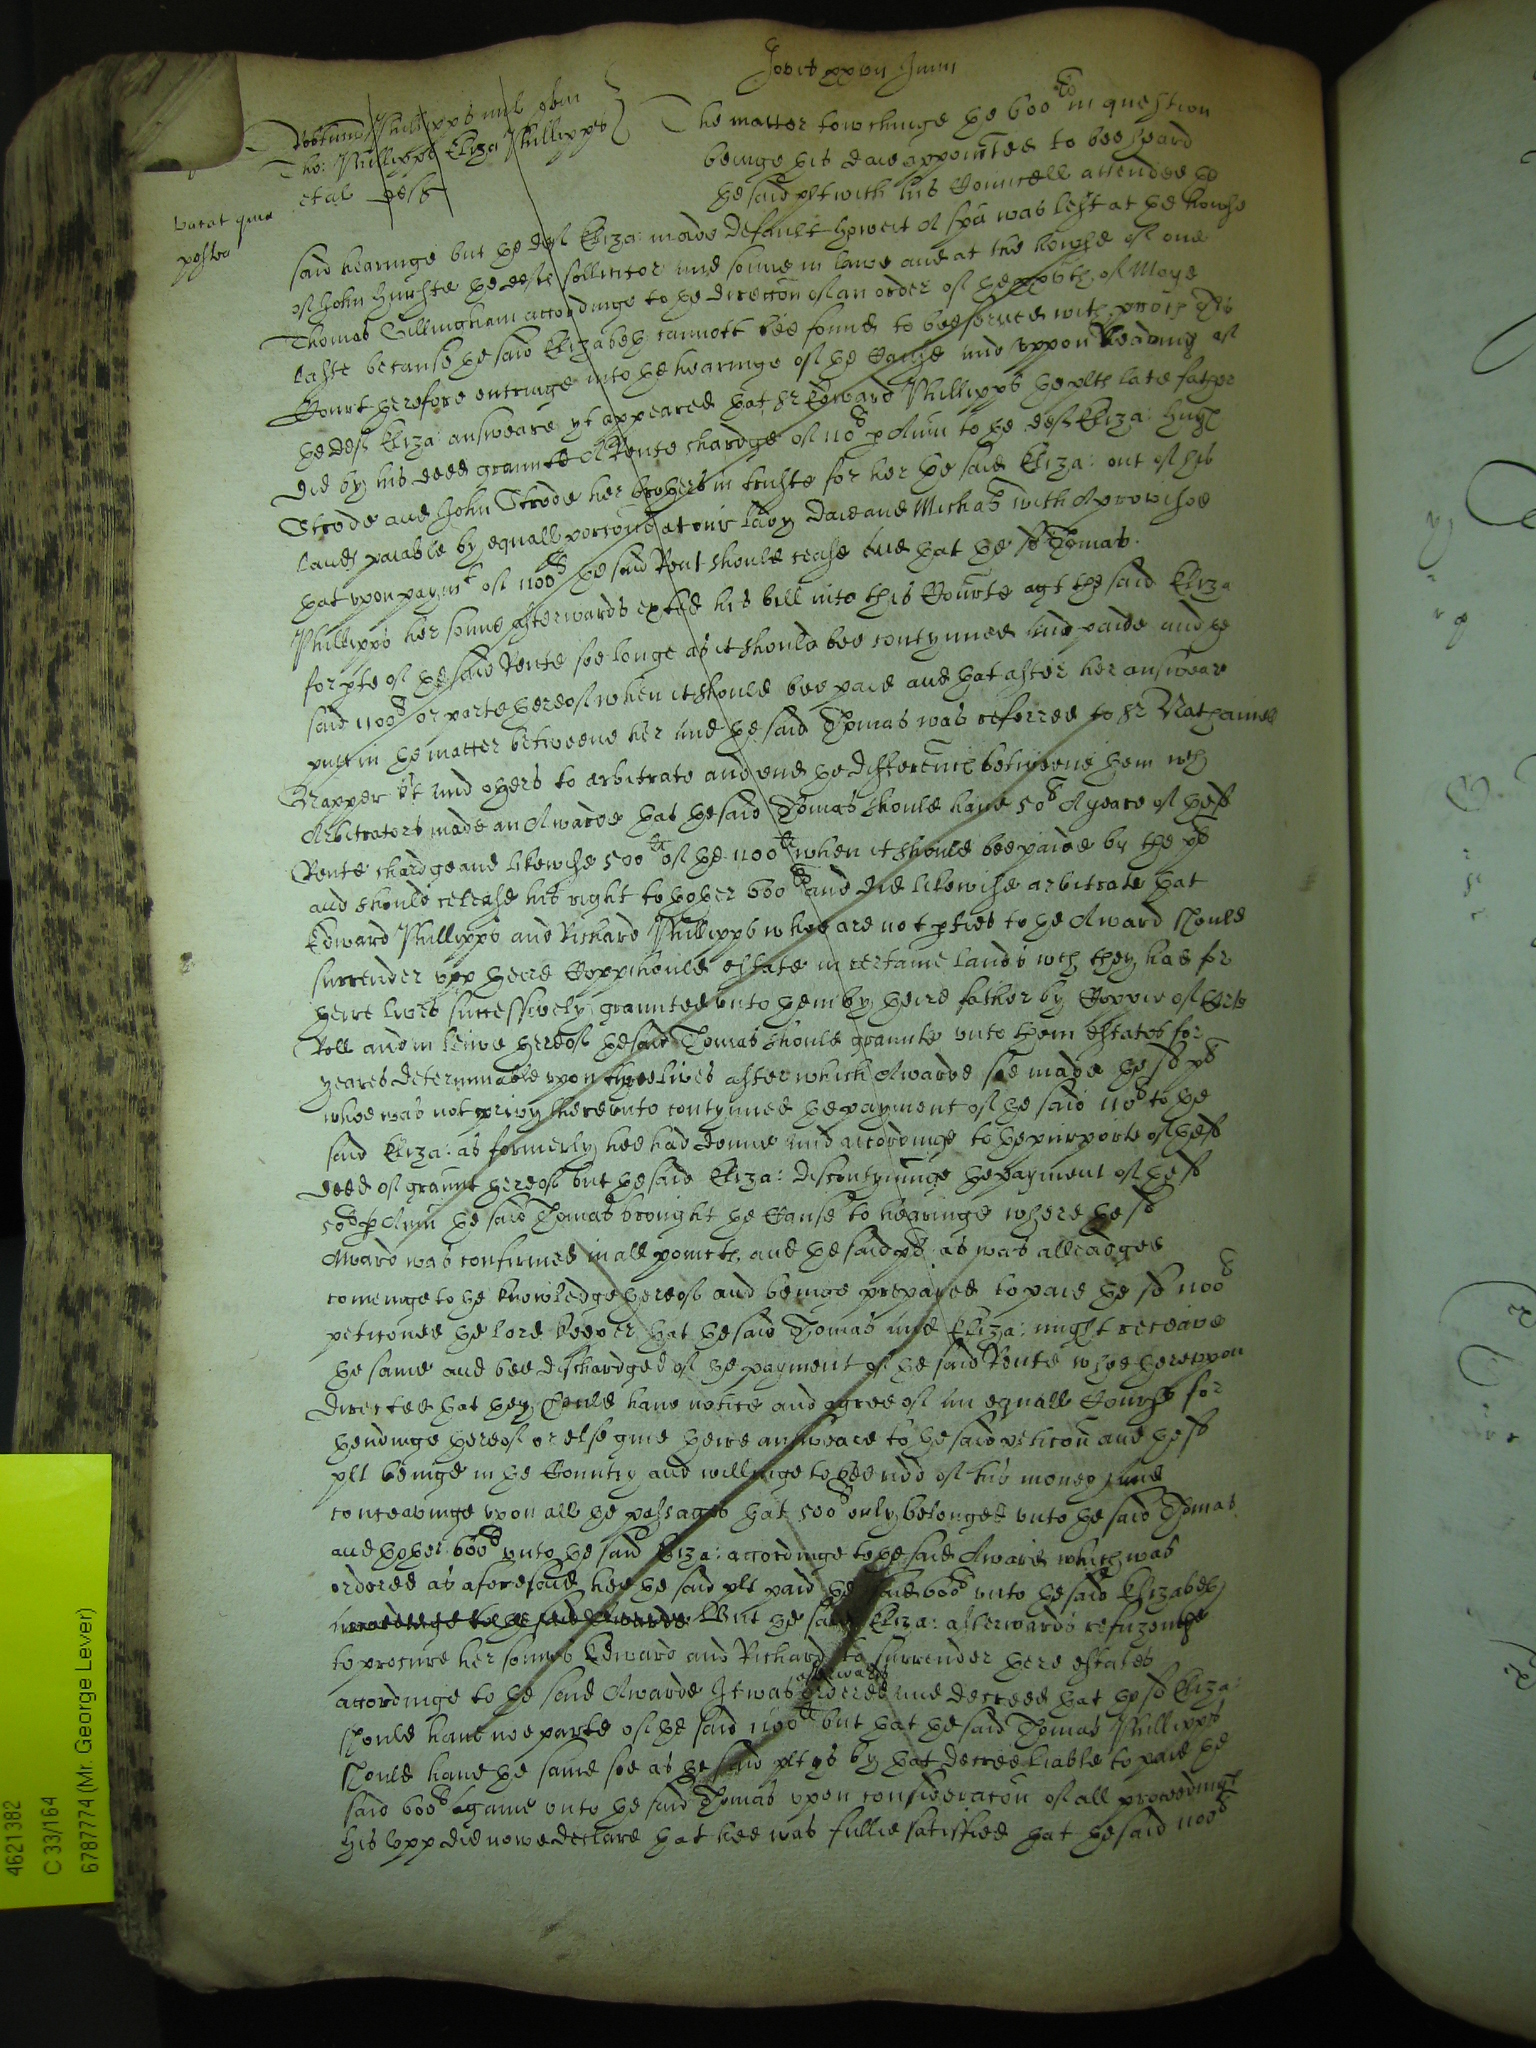 Jovis xxvii Junii
Robtus Phillipps mil quer
Tho: Phillipps Eliza Phillipps
et al deft
vacat quia
postea
The matter towchinge the 600li in question
beinge this daie appointed to bee heard
the said plt with his Councell attended the
said hearinge but the deft Eliza: made default howbeit A spa was left at the howse
of John Hurste the defts sollicitor and sonne in lawe and at the howse of one
Thomas Tillingham accordinge to the direccon of an order of the xxvth of Maye
laste because the said Elizabeth cannott bee found to bee served with proces This
Court therefore entringe into the hearinge of the Cause and uppon Readinge of
the deft Eliza: answeare yt appeared that Sr Edward Phillipps the plts late father
did by his deed graunte A Rente chardge of 110li p Annu to the deft Eliza: Hugh
Strode and John Strode her brothers in truste for her the said Eliza: out of his
lands paiable by equall porcons at our Lady Daie and Michas with A prowisoe
that upon paymt of 1100li the said Rent should cease and that the sd Thomas
Phillipps her sonne afterwards exhted his bill into this Courte agt the said Eliza
for pte of the said Rente soe longe as it should bee contynued and paide and the
said 1100li or parte thereof when it should bee paid and that after her answeare
putt in the matter betweene her and the said Thomas was referred to Sr Nathaniel
Napper kt and others to arbitrate and end the differences betweene them wch
Arbitrators made an Awarde that the said Thomas should have 50li A yeare of the sd
Rente chardge and likewise 500li of the 1100li when it should bee paide by the plt
and should release his right to thother 600li and did likewise arbitrate that
Edward Phillipps and Richard Phillipps whoe are not pties to the Award should
surrender upp theire Coppihould estate in certaine lands wch they had for
theire lives successively graunted unto them by theire father by Coppie of Corte
Roll and in liewe thereof the said Thomas should graunte unto them estates for
yeares determinable upon three lives after which Awarde soe made the sd plt
whoe was not privy thereunto contynued the payment of the said 110li to the
said Eliza: as formerly hee had donne and accordinge to the purporte of the sd
deed of graunt thereof but the said Eliza: discontynuinge the payment of the sd
50li p Annu the said Thomas brought the Cause to hearinge where the sd
Award was confirmed in all points and the said plt as was alleadged
cominge to the knowledge thereof and beinge prepared to paie the sd 1100li
peticoned the Lord Keeper that the said Thomas and Eliza: might receave
the same and bee dischardged of the payment of the said Rente whoe thereuppon
directed that they should have notice and agree of an equall Course for
thendinge thereof or else give theire answeare to the said peticon and the sd
plt beinge in the Country and willinge to bee ridd of his money and
conceavinge upon all the passages that 500li only belonged unto the said Thomas
and thother 600li unto the said Eliza: accordinge to the said Award which was
ordered as aforesaid hee the said plt paid the said 600li unto the said Elizabeth
accordinge to the said Awarde But the said Eliza: afterwards refuzinge
to procure her sonnes Edward and Richard to surrender there estates
accordinge to the said Awarde It was afterwards ordered and decreed that the sd Eliza:
should have noe parte of the said 1100li but that the said Thomas Phillipps
should have the same soe as the said plt ys by that decree liable to paie the
said 600li againe unto the said Thomas upon consideracon of all proceedings
his Lopp did nowe declare that hee was fullie satisfied that the said 1100li
4621382
C 33/164
6787774 (Mr. George Lever)